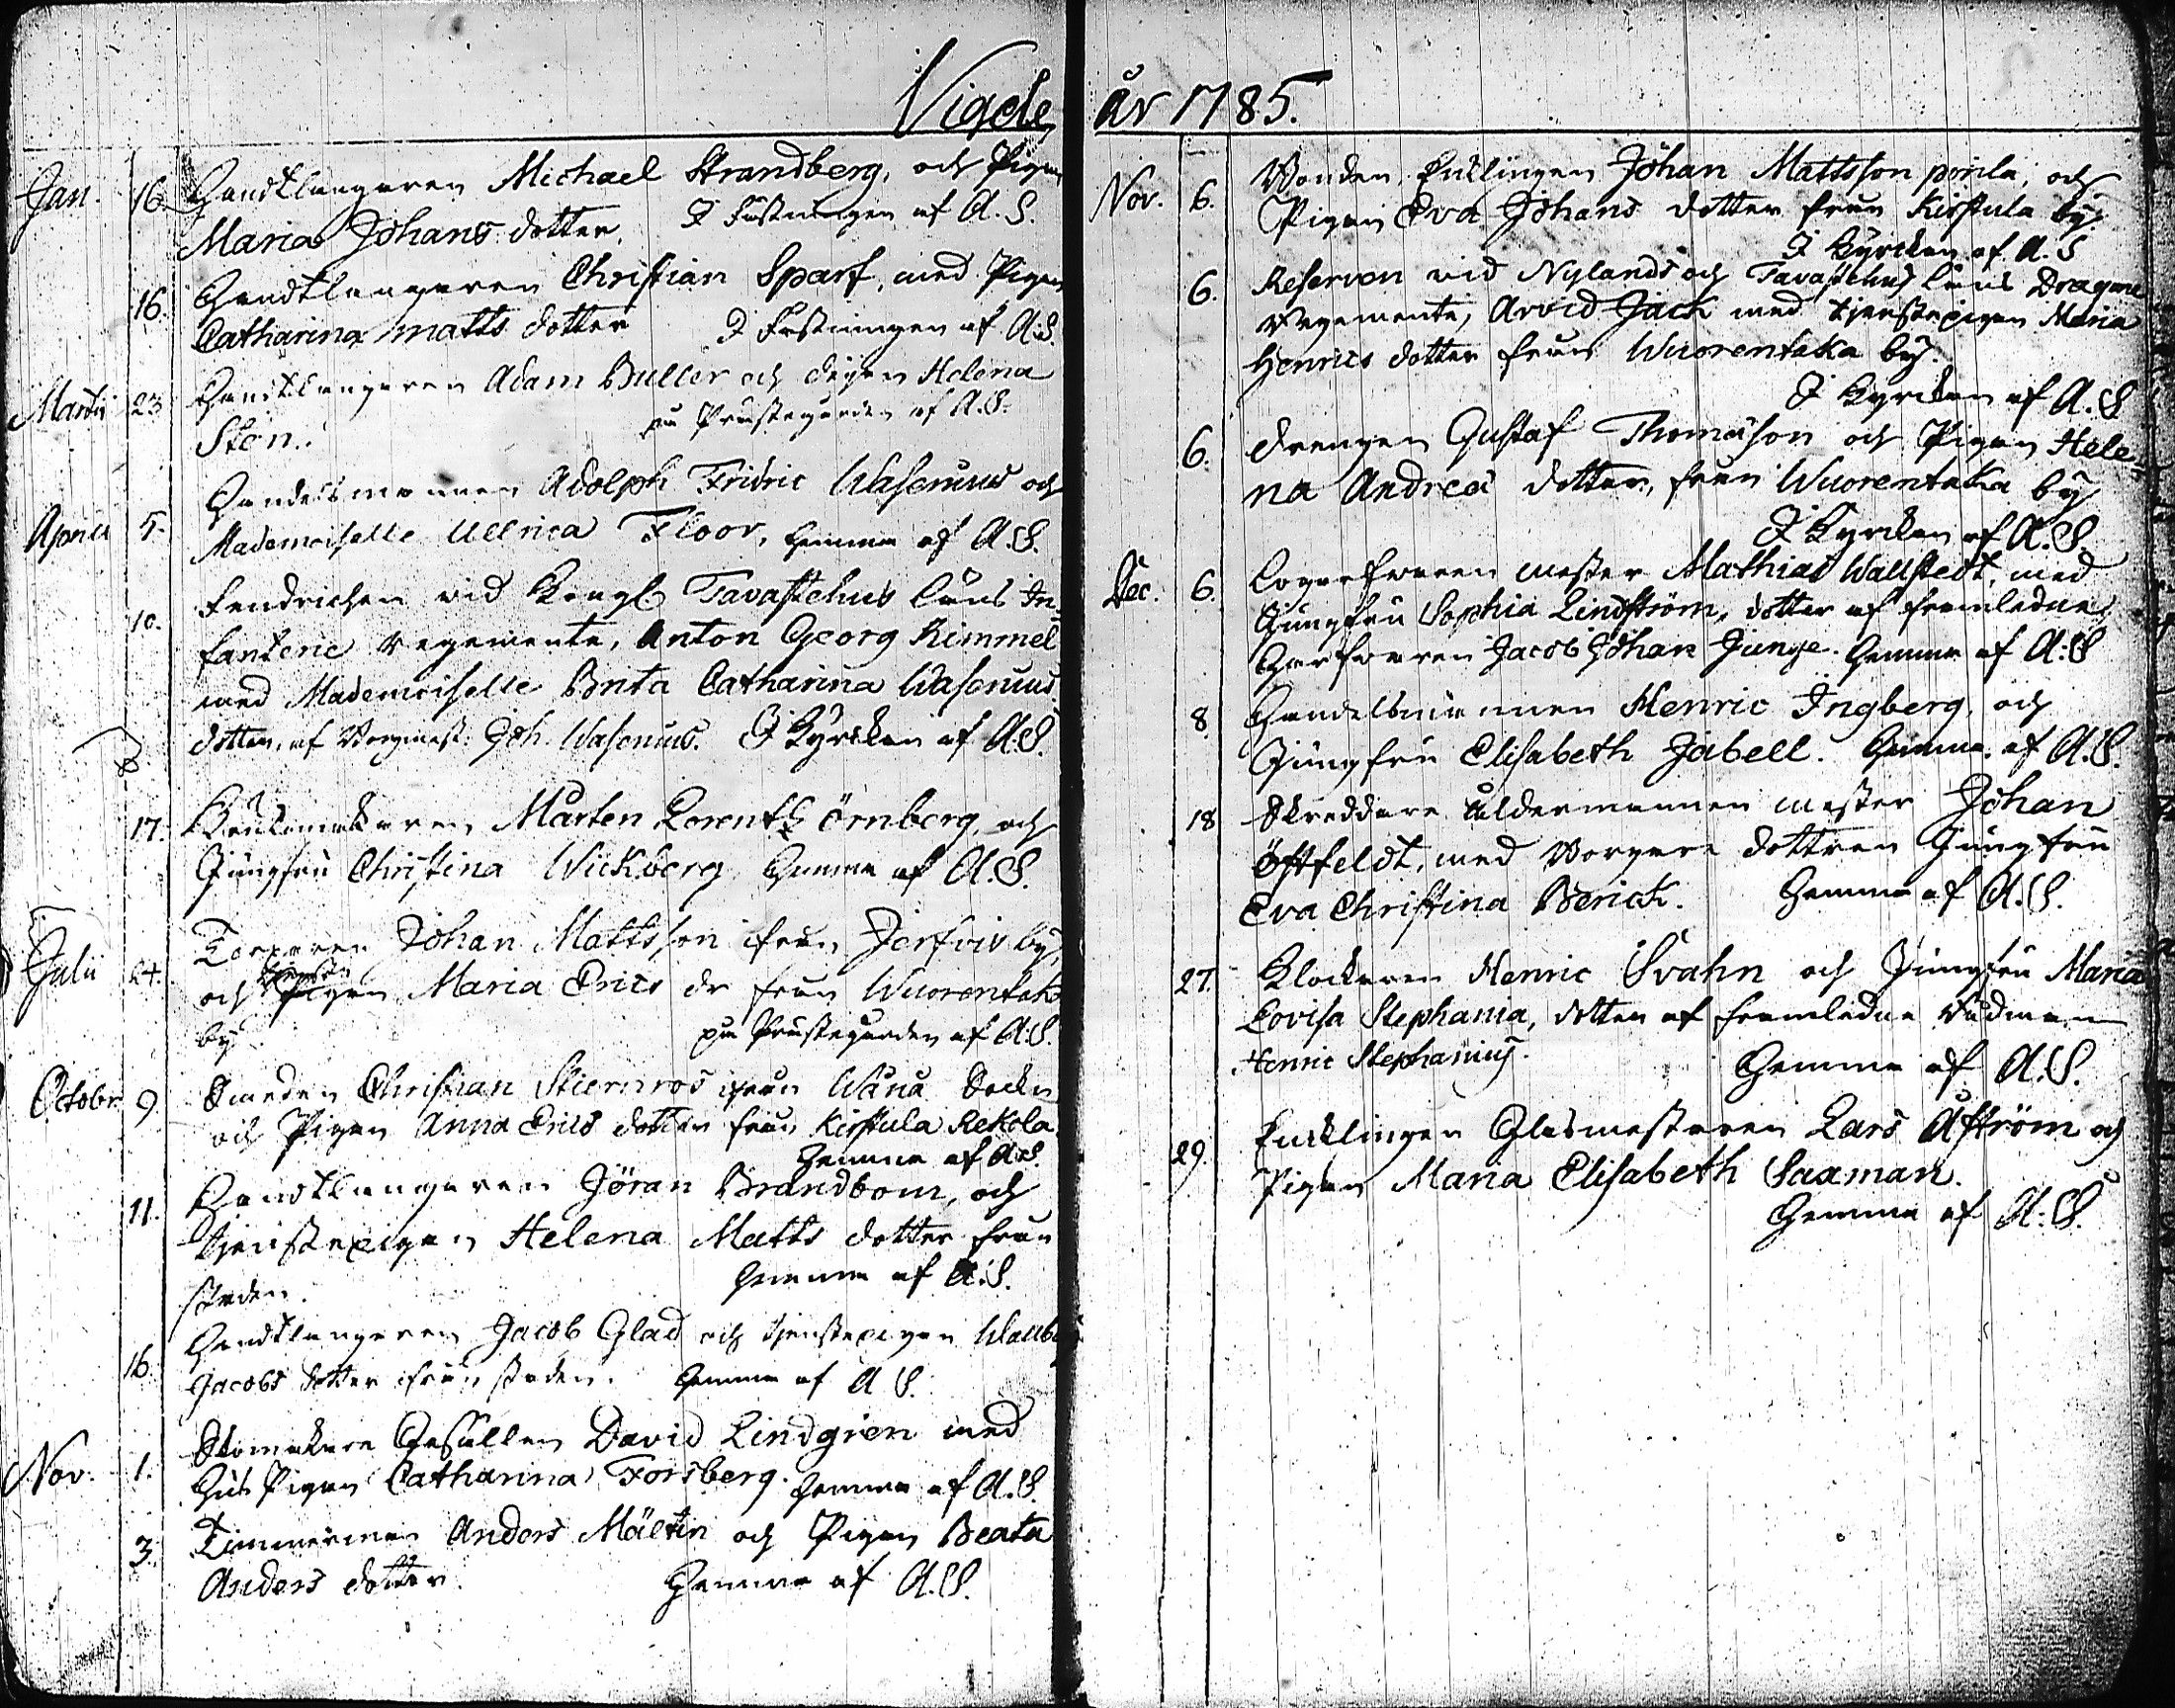 Vigde år 1785.
Jan. 16. Handtlangaren Michael Strandberg, och Pigan
Maria Johans dotter. I Fästningen af A. S.
16. Handtlangaren Christian Sparf, med Pigan
Catharina Matts dotter I Fästningen af A. S.
Martii 23 Handtlangaren Adam Buller och Pigan Helena
Sten. på Prästegården af A. S.
Handelsmannen Adolph Fridric Wasenius och
Aprill 5. Mademoiselle Ullrica Floor, hemma af A. S.
10. Fendrichen vid Kongl. Tavastehus läns In-
fanterie regemente, Anton Georg Kimmel
med Mademoiselle Brita Catharina Wasenius,
dotter, af Borgmest. Joh. Wasenius. I Kyrckan af A. S.
17. Mårten Lorentz Örnberg, och
Jungfru Christina Wickberg. Hemma af A. S.
Torparen Johan Mattsson ifrån Jerfvis by,
Julii 24. och tjenste Pigan Maria Erics dr från Wuorentaka
by på Prästegården af A. S.
Octobr. 9. Smeden Christian Stiernros ifrån Wånå Sockn
och Pigan Anna Erics dotter från Kirstula Rekola.
Hemma af A. S.
11. Handtlangaren Jöran Brandbom, och
tjenstepigan Helena Matts dotter från
staden. Hemma af A. S.
16. Handtlangaren Jacob Glad och tjenstepigan
Jacobs dotter ifrån staden. Hemma af A. S.
Nov. 1. Skomakare Gesällen David Lindgren med
Hus Pigan Catharina Forsberg. Hemma af A. S.
3. Timmerman Anders Mältin och Pigan Beata
Anders dotter. Hemma af A. S.
Nov. 6. Bonden, Enklingen Johan Mattsson och
Pigan Eva Johans dotter från Kirstula by.
I Kyrckan af A. S
6. Reserven vid Nylands och Tavastehus läns Dragone
regemente, Arvid Jack med tjenstepigan Maria
Henrics dotter från Wuorentaka by.
I Kyrckan af A. S
6. Drengen Gustaf Thomasson och Pigan Hele-
na Andreæ dotter, från Wuorentaka by
I Kyrckan af A. S.
Dec. 6. mester Mathias Wallstedt, med
Jungfru Sophia Lindström, dotter af framledne
Garfvaren Jacob Johan Junge. Hemma af A. S
8. Handelsmannen Henric Ingberg, och
Jungfru Elisabeth Jabell. Hemma af A. S.
18 Skreddare åldermannen mester Johan
Östfeldt, med Borgare dottren Jungfru
Eva Christina Berick. Hemma af A. S.
27. Klockaren Henric Svahn och Jungfru Maria
Lovisa Stephania, dotter af framledne Rådman
Henric Stephanius. Hemma af A. S.
29. Encklingen Glasmästaren Lars Åström och
Pigan Maria Elisabeth Saxman.
Hemma af A. S.